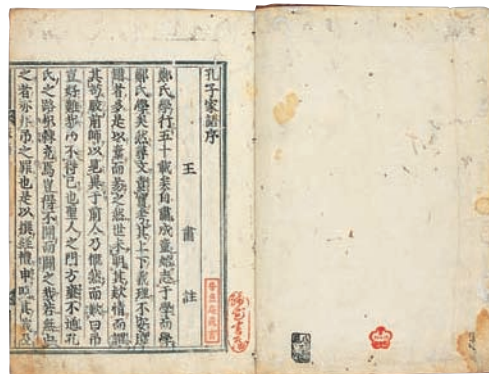 孔子家語序
王肅註
鄭氏學行五十載矣自肅成童始志于學而學
鄭氏學矣然尋文責實考其上下義理不安違
錯者多是以奪而易之然世未明其款情而謂
其苟駮前師以見異于前人乃慨然而歎曰予
豈好難哉予不得已也聖人之門方壅不通孔
氏之路枳棘充焉豈得不開而闢之哉若無由
之者亦非予之罪也是以撰經禮申明其義及